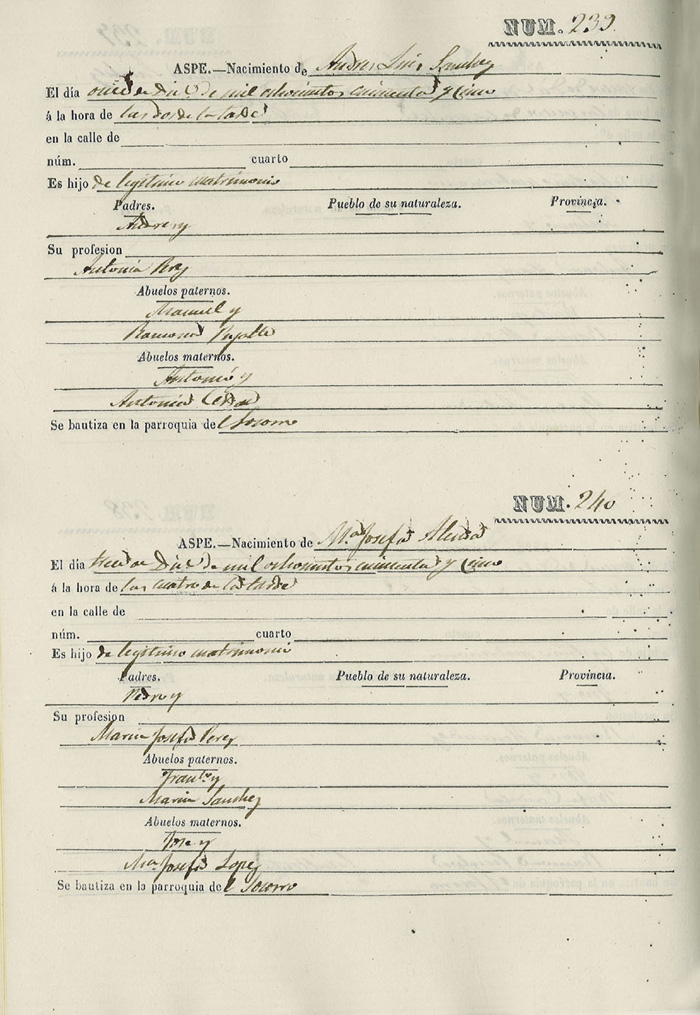 NUM. 239.
ASPE.—Nacimiento de Andres Luis Sanchez
El día once de Dice de mil ochocientos cincuenta y cinco
á la hora de las dos de la tarde
en la calle de
núm. cuarto
Es hijo de legitimo matrimonio
Padres. Pueblo de su naturaleza. Provincia.
Andres y
Su profesion
Antonia Perez
Abuelos paternos.
Manuel y
Ramona
Abuelos maternos.
Antonio y
Antonia
Se bautiza en la parroquia del Socorro
NUM. 240
ASPE.—Nacimiento de Mª Josefa
El día trece de Dice de mil ochocientos cincuenta y cinco
á la hora de las cuatro de la tarde
en la calle de
núm. cuarto
Es hijo de legitimo matrimonio
Padres. Pueblo de su naturaleza. Provincia.
Pedro y
Su profesion
Maria Josefa Perez
Abuelos paternos.
Franco y
Maria Sanchez
Abuelos maternos.
Jose y
Mª Josefa Lopez
Se bautiza en la parroquia del Socorro